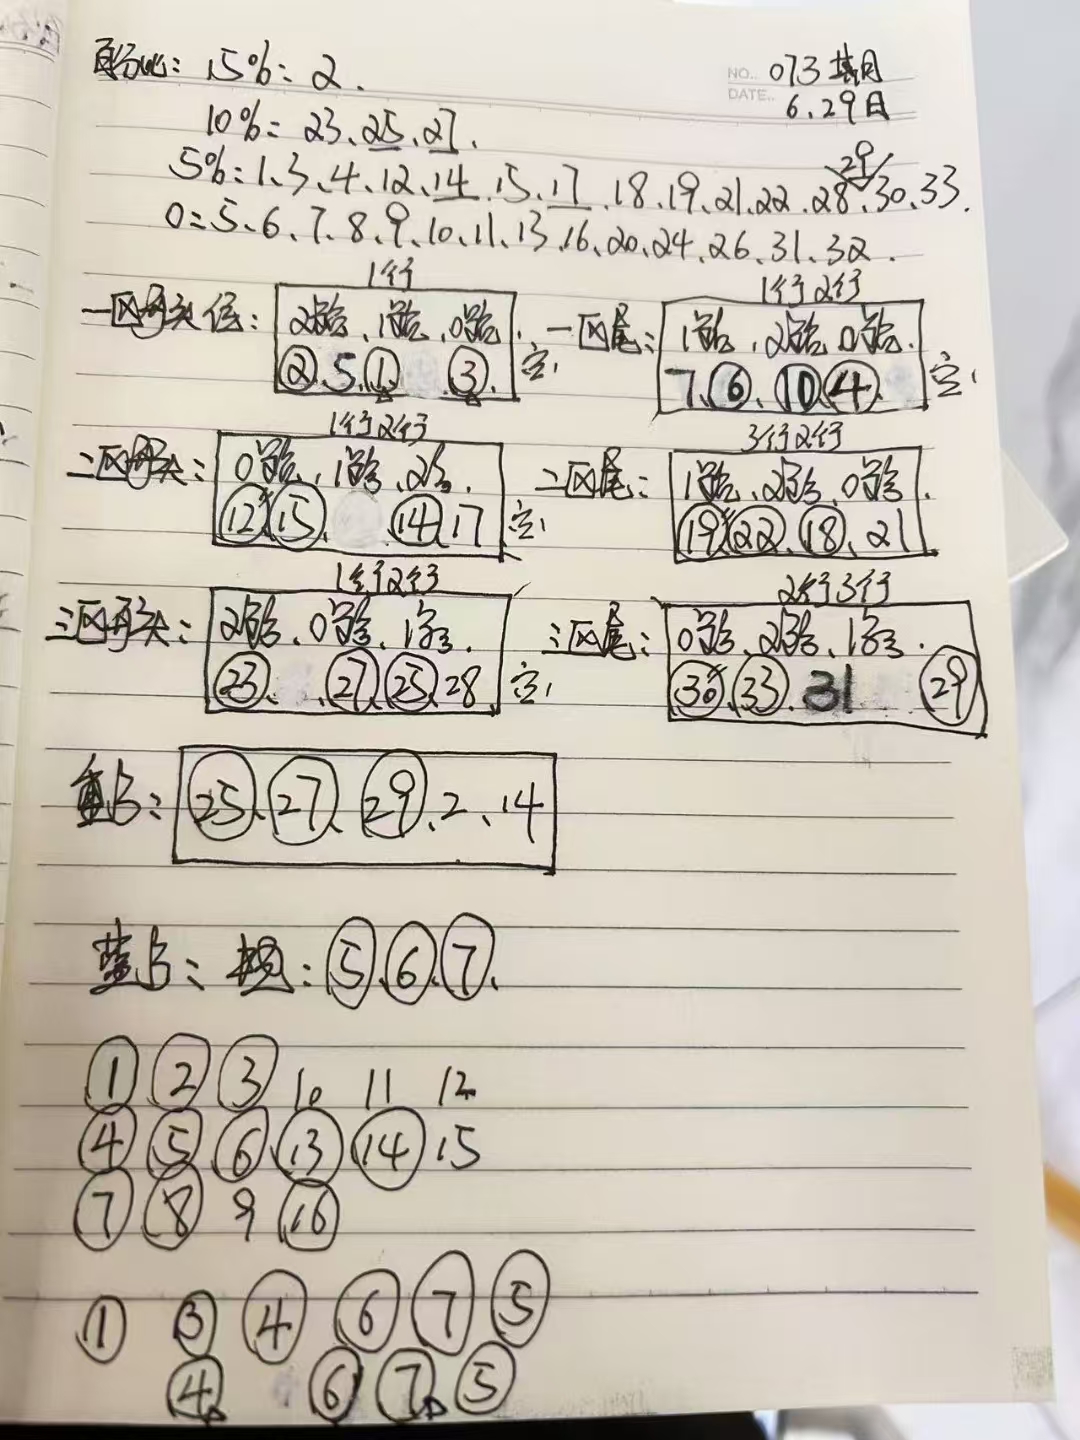 百分比：15%：2.
NO.. 073 期
DATE.. 6.29日
10%：23、25、27.
29
5%：1、3、4、12、14、15、17、18、19、21、22、28、30、33.
0：5、6、7、8、9、10、11、13、16、20、24、26、31、32.
1行
一区 头位：2路、1路、0路.
② 5 ① ③ 空，
1行2行
一区尾：1路、2路 0路.
7、⑥、⑩ ④ 空，
1行2行
二区 头：0路、1路、2路.
⑫ ⑮ ⑭ 17 空，
3行2行
二区尾：1路、2路、0路.
⑲ ㉒、⑱、21
1行2行
三区 头：2路、0路、1路.
㉓ ㉗ ㉕ 28 空，
2行3行
三区尾：0路、2路、1路.
㉚ ㉝ 31 ㉙
重占：㉕、㉗、㉙、2、14
蓝占： ：⑤ ⑥ ⑦.
① ② ③ 10 11 12
④ ⑤ ⑥ ⑬ ⑭ 15
⑦ ⑧ 9 ⑯
① ③ ④ ⑥ ⑦ ⑤
④ ⑥ ⑦ ⑤